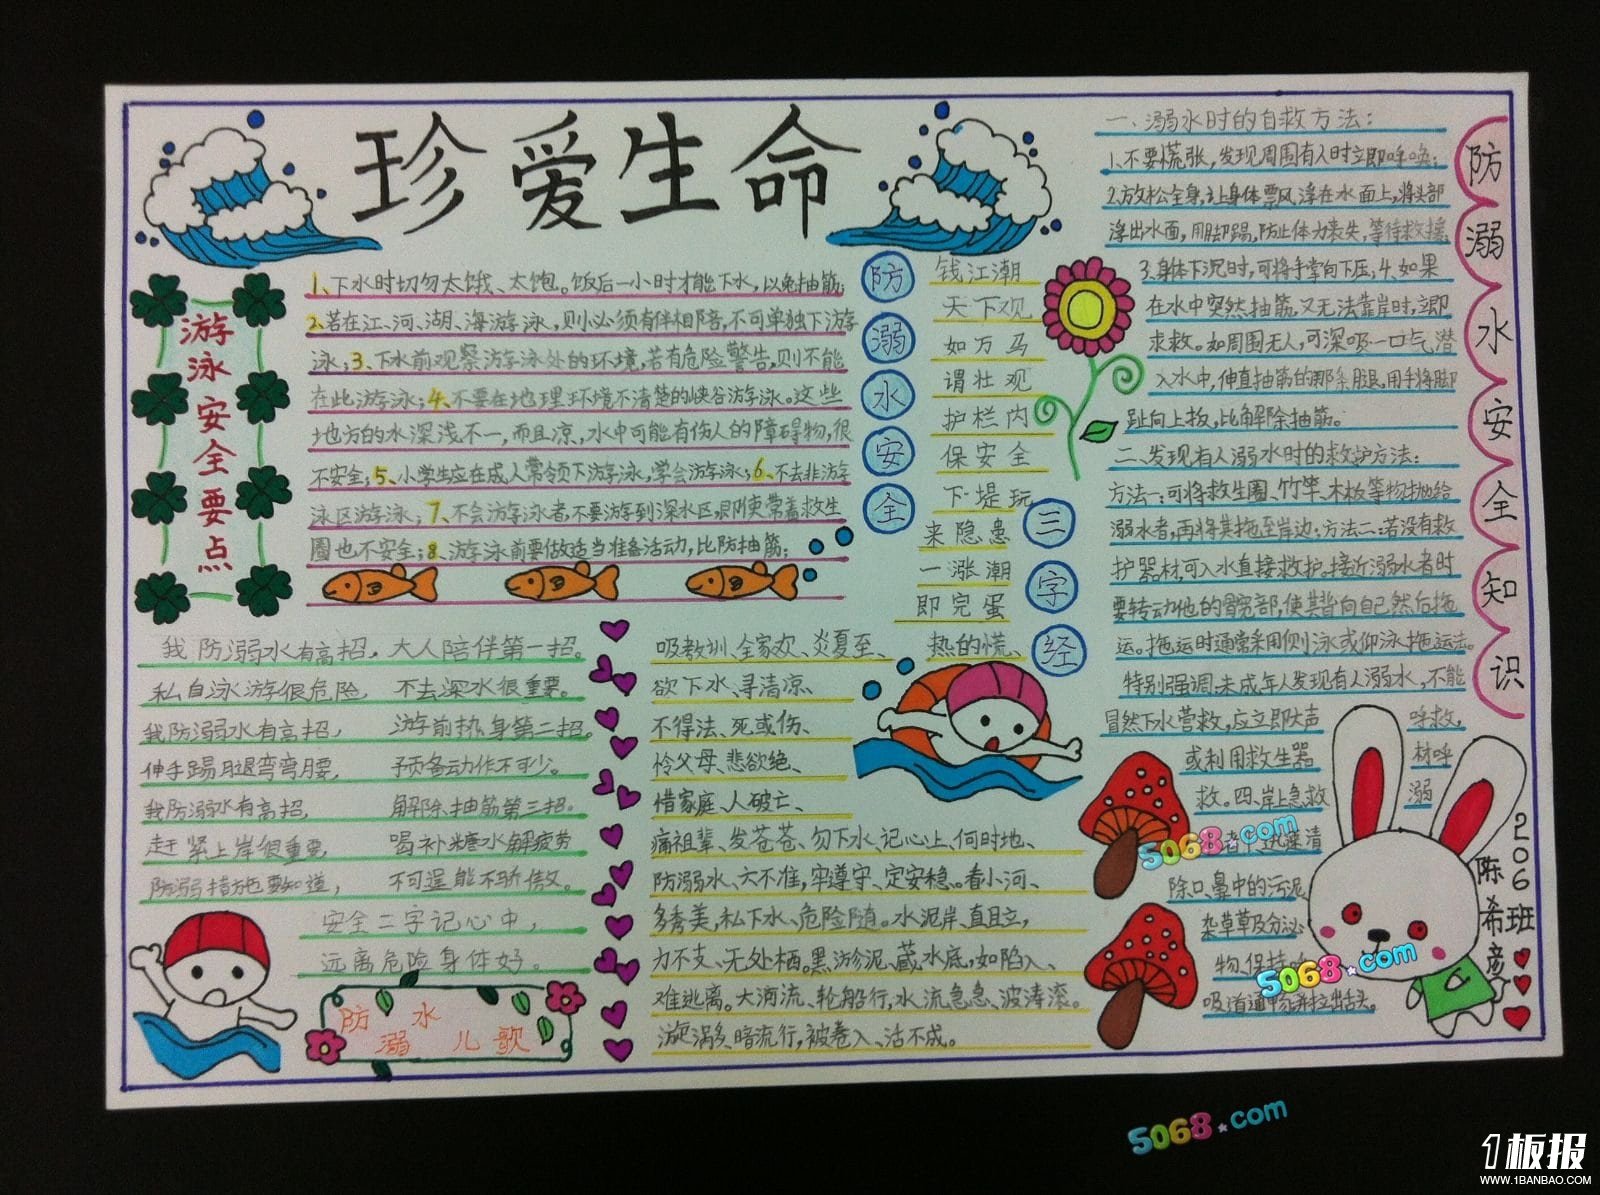 珍爱生命
游泳安全要点
1、下水时切勿太饿、太饱。饭后一小时才能下水，以免抽筋；
2、若在江、河、湖、海游泳，则必须有伴相陪，不可单独下游
泳；3、下水前观察游泳处的环境，若有危险警告，则不能
在此游泳；4、不要在地理环境不清楚的峡谷游泳。这些
地方的水深浅不一，而且凉，水中可能有伤人的障碍物，很
不安全；5、小学生应在成人带领下游泳，学会游泳；6、不去非游
泳区游泳；7、不会游泳者，不要游到深水区，即使带着救生
圈也不安全；8、游泳前要做适当准备活动，比防抽筋；
防溺水安全
三字经
钱江潮
天下观
如万马
谓壮观
护栏内
保安全
下堤玩
来隐患
一涨潮
即完蛋
吸教训、全家欢、炎夏至、热的慌、
欲下水、寻清凉、
不得法、死或伤、
怜父母、悲欲绝、
惜家庭、人破亡、
痛祖辈、发苍苍、勿下水、记心上、何时地、
防溺水、六不准，牢遵守、定安稳。看小河、
多秀美，私下水、危险随。水泥岸、直且立，
力不支、无处栖。黑淤泥、藏水底，如陷入、
难逃离。大河流、轮船行，水流急急、波涛滚。
漩涡多、暗流行，被卷入、活不成。
我防溺水有高招，大人陪伴第一招。
私自泳游很危险，不去深水很重要。
我防溺水有高招，游前热身第二招。
伸手踢腿弯弯腰，预备动作不可少。
我防溺水有高招，解除抽筋第三招。
赶紧上岸很重要，喝补糖水解疲劳
防溺措施要知道，不可逞能不骄傲。
安全二字记心中，
远离危险身体好。
防溺水儿歌
防溺水安全知识
一、溺水时的自救方法：
1、不要慌张，发现周围有人时立即呼唤；
2、放松全身，让身体票风浮在水面上，将头部
浮出水面，用脚踢，防止体力丧失，等待救援，
3、身体下沉时，可将手掌向下压；4、如果
在水中突然抽筋，又无法靠岸时，立即
求救。如周围无人，可深吸一口气潜
入水中，伸直抽筋的那条腿，用手将脚
趾向上扳，比解除抽筋。
二、发现有人溺水时的救护方法：
方法一：可将救生圈、竹竿、木板等物抛给
溺水者，再将其拖至岸边；方法二：若没有救
护器材，可入水直接救护。接近溺水者时
要转动他的髋部，使其背向自己然后拖
运。拖运时通常采用侧泳或仰泳拖运法。
特别强调：未成年人发现有人溺水，不能
冒然下水营救，应立即大声呼救，
或利用救生器材呼
救。四、岸上急救溺
者 迅速清
除口、鼻中的污泥、
杂草及分泌
物，保持
吸道通畅，并拉出舌头。
206班
陈希彦
5068.com
5068.com
5068.com
1板报
WWW.1BANBAO.COM